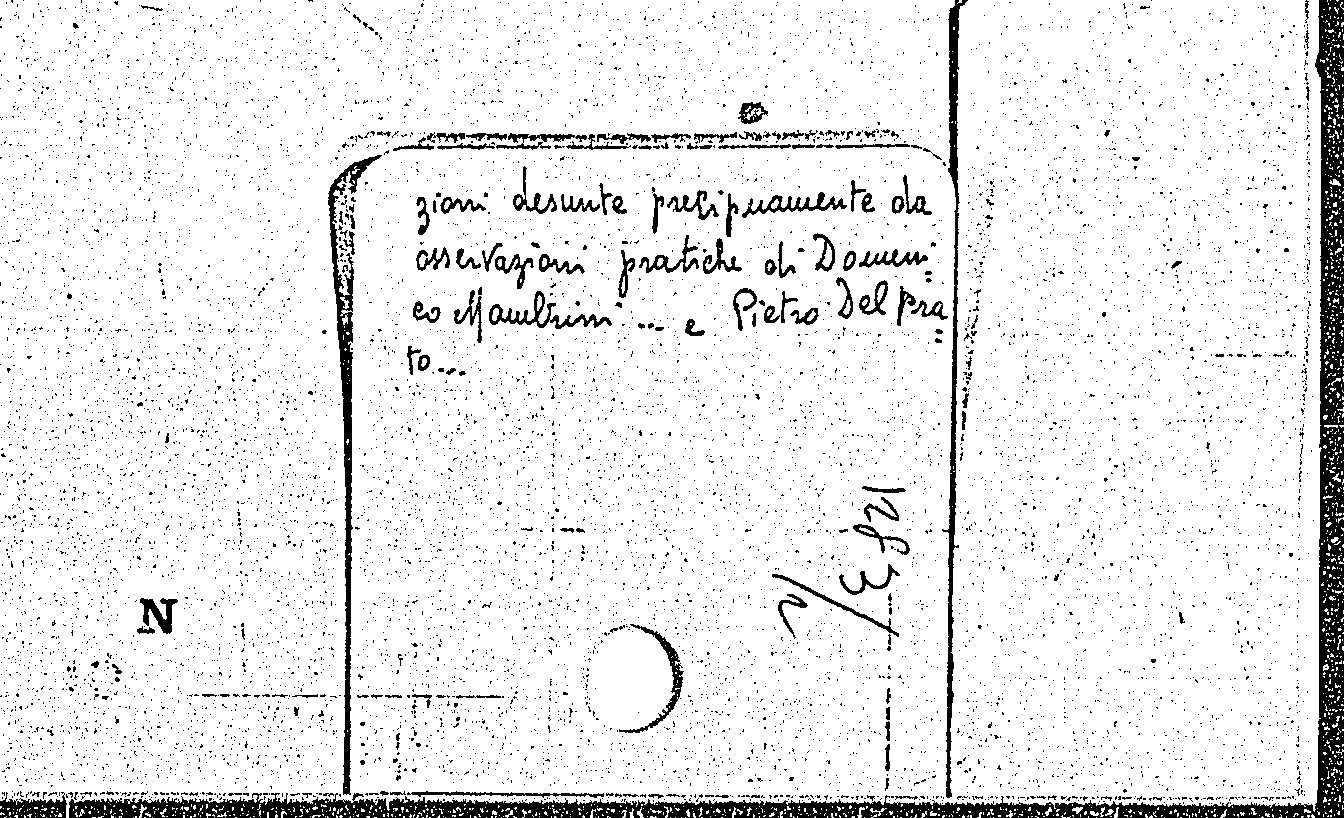 zioni desunte precipuamente da
osservazioni pratiche di Domeni=
co Mambrini ... e Pietro Del Pra=
to...
N